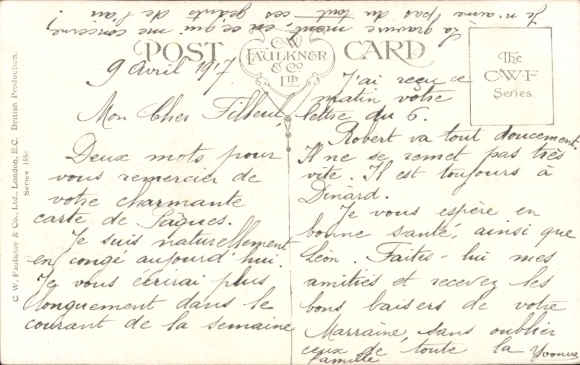 Je n'aime pas du tout ces géants de l'air!
la gravure montr est ce qui me concerne
POST CARD
C.W.
FAULKNER
& CO
LTD
The
C.W.F
Series.
C. W. Faulkner & Co., Ltd., London, E.C. British Production.
Series 1586.
9 Avril 1917.
Mon Cher Filleul,
Deux mots pour
vous remercier de
votre charmante
carte de Pâques.
Je suis naturellement
en congé aujourd'hui.
Je vous écrirai plus
longuement dans le
courant de la semaine
J'ai reçu ce
matin votre
lettre du 6.
Robert va tout doucement.
Il ne se remet pas très
vite. Il est toujours à
Dinard.
Je vous espère en
bonne santé, ainsi que
Léon. Faites-lui mes
amitiés et recevez les
bons baisers de votre
Marraine, sans oublier
ceux de toute la
famille
Yvonne